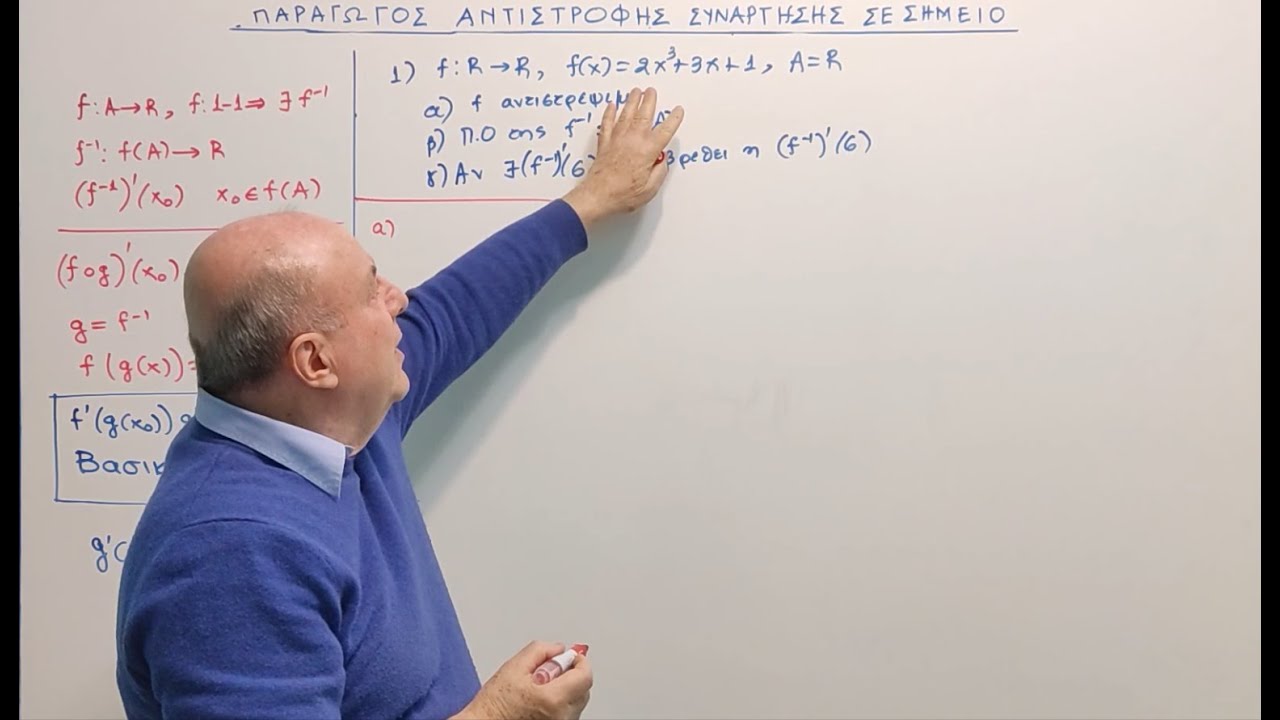 ΠΑΡΑΓΩΓΟΣ ΑΝΤΙΣΤΡΟΦΗΣ ΣΥΝΑΡΤΗΣΗΣ ΣΕ ΣΗΜΕΙΟ
f: A→R, f: 1-1 ⇒ ∃ f⁻¹
f⁻¹: f(A) → R
(f⁻¹)'(x₀) x₀ ∈ f(A)
(fog)'(x₀)
g = f⁻¹
f(g(x)) =
f'(g(x₀))
g'(
1) f: R → R, f(x) = 2x³+3x+1, A=R
α) f
β) Π.Ο της f⁻¹
γ) Αν ∃(f⁻¹)'(6) βρεθει η (f⁻¹)'(6)
α)